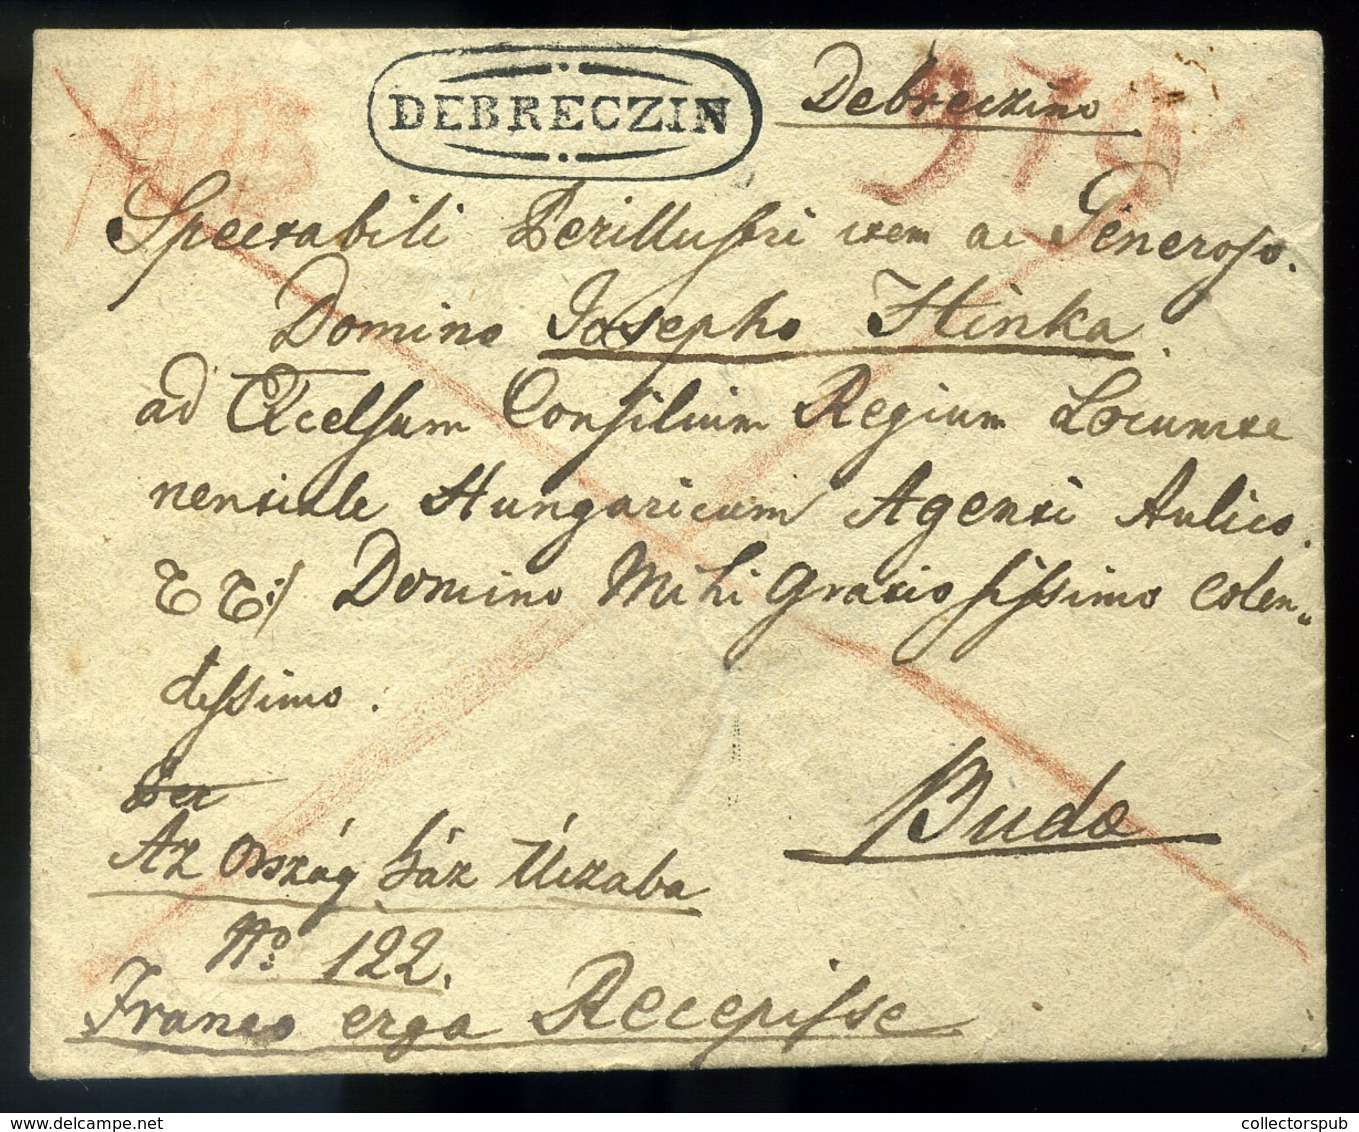 DEBRECZIN
Debreczino
979
Spectabili Perillustri item ac Generoso.
Domino Josepho Hinka.
ad Excelsum Consilium Regium Locumte
nentiale Hungaricum Agenti Aulico.
Domino Mihi Gratiosissimo Colen„
dissimo.
Per
Az Ország ház Útzaba
No 122.
Buda
Franco erga Recepisse
collectorspub